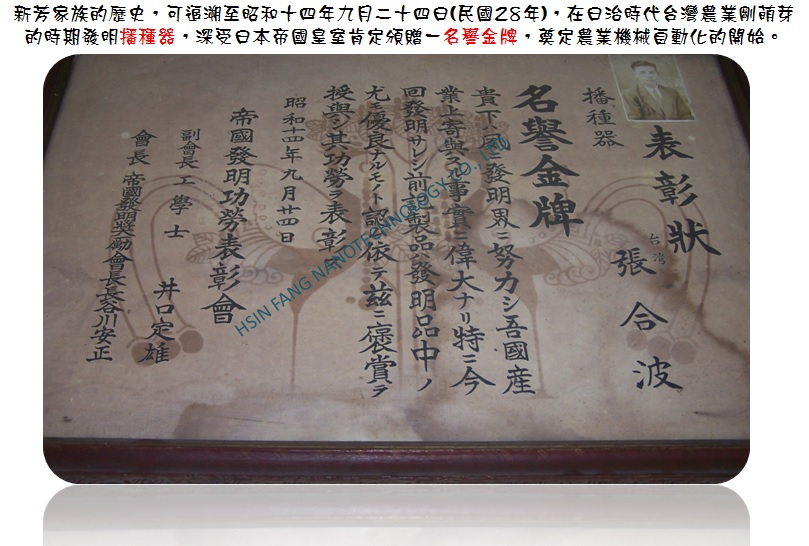 新芳家族的歷史，可追溯至昭和十四年九月二十四日(民國28年)，在日治時代台灣農業剛萌芽
的時期發明播種器，深受日本帝國皇室肯定頒贈一名譽金牌，奠定農業機械自動化的開始。
表彰狀
台灣
張合波
播種器
名譽金牌
貴下ハ
發明界ニ努力シ吾國産
業上寄與スル事實ニ偉大ナリ特ニ今
回發明サレシ前記製品ハ發明品中ノ
尤モ優良ナルモノト認メ依テ茲ニ褒賞ヲ
授與シ其功勞ヲ表彰ス
昭和十四年九月廿四日
帝國發明功勞表彰會
副會長 工學士 井口定雄
會長 帝國發明奬勵會長長谷川安正
HSIN FANG NANOTECHNOLOGY CO., LTD